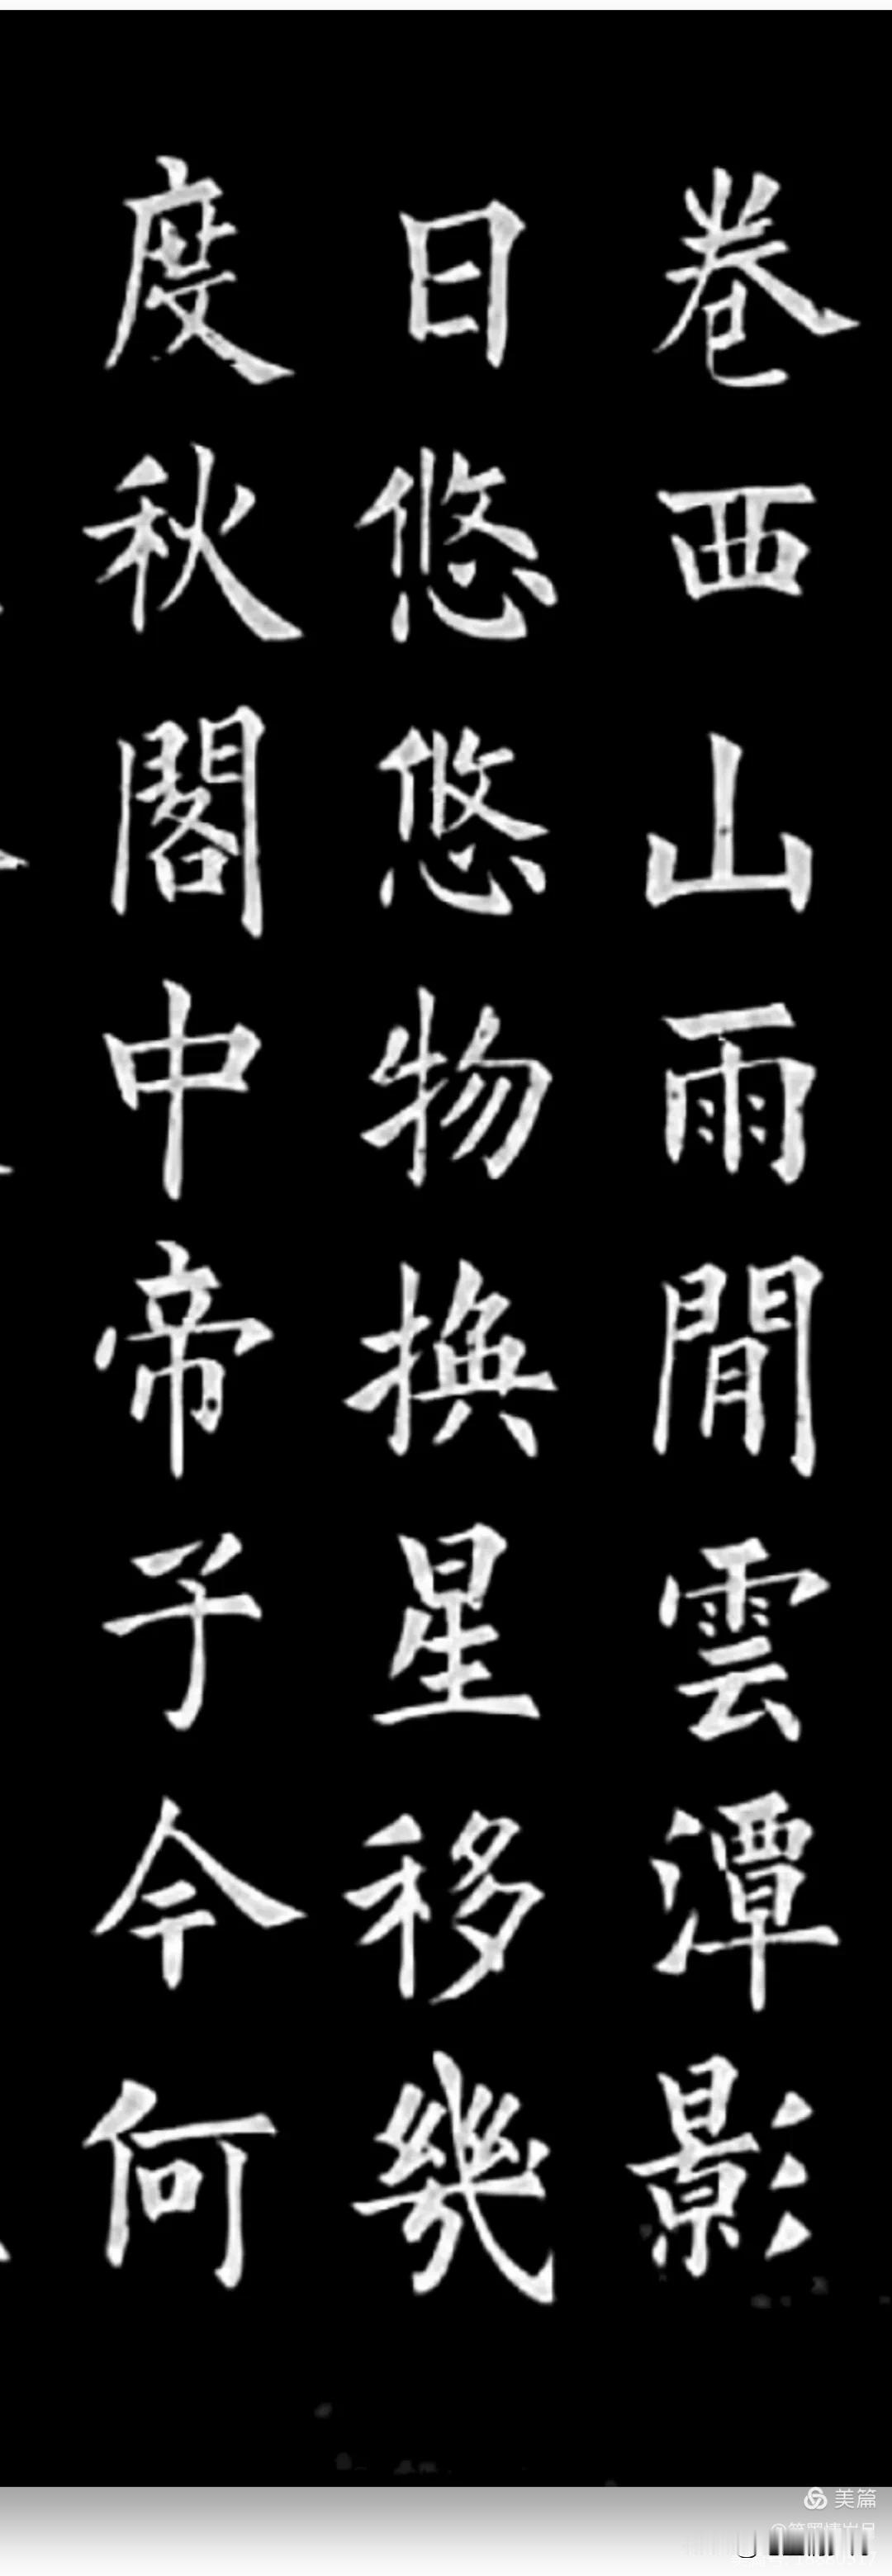 卷西山雨閒雲潭影
日悠悠物換星移幾
度秋閣中帝子今何
美篇